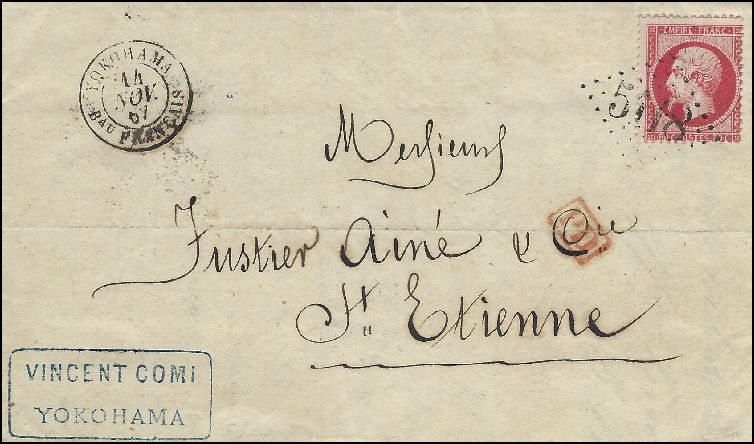 YOKOHAMA
14
NOV.
67
BAU FRANÇAIS
EMPIRE FRANC
5118
Messieurs
Fustier Ainé & Cie
St. Etienne
VINCENT COMI
YOKOHAMA